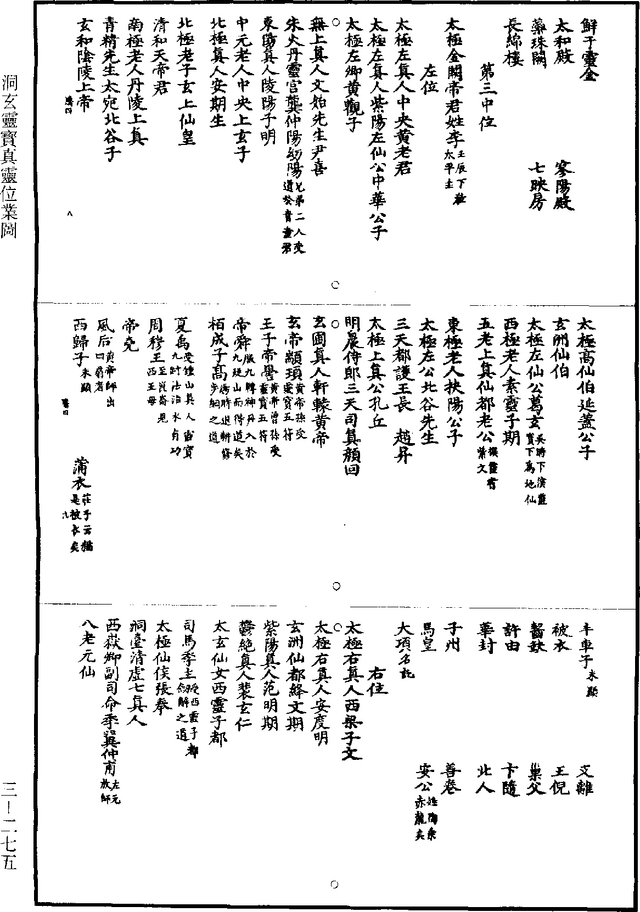 鮮于靈金
太和殿　寥陽殿
蘂珠闕　七映房
長綿樓
第三中位
太極金闕帝君姓李壬辰下教太平主
左位
太極左真人中央黃老君
太極左真人紫陽左仙公中華公子
太極左卿黃觀子
無上真人文始先生尹喜
朱火丹靈宮龔仲陽幼陽兄弟二人受道於青童君
東陽真人陵陽子明
中元老人中央上玄子
北極真人安期生
北極老子玄上仙皇
清和天帝君
南極老人丹陵上真
青精先生太宛北谷子
玄和陰陵上帝
太極高仙伯延蓋公子
玄洲仙伯
太極左仙公葛玄吳時下演靈寶下為地仙
西極老人素靈子期
五老上真仙都老公撰靈書紫文
東極老人扶陽公子
太極左公北谷先生
三天都護王長　趙昇
太極上真公孔丘
明晨侍郎三天司真顏回
玄圃真人軒轅黃帝
玄帝顓頊黃帝孫受靈寶五符
王子帝嚳黃帝曾孫受靈寶五符
帝舜服九轉神丹入於九疑山而得道矣
栢成子高湯時退耕修步綱之道
夏禹受鍾山真人靈寶九跡法治水有功
周穆王至崑崙見西王母
帝堯
風后黃帝師出四扇者
西歸子未顯　蒲衣莊子云猶是被衣矣
丰車子未顯　支離
被衣　王倪
齧缺　巢父
許由　卞隨
華封　北人
子州　善卷
馬皇　安公姓陶乘赤龍矣
大項名託
右位
太極右真人西梁子文
太極右真人安度明
玄洲仙都絳文期
紫陽真人范明期
鬱絕真人裴玄仁
太玄仙女西靈子都
司馬季主受西靈子都劒解之道
太極仙侯張奉
洞臺清虛七真人
西嶽卿副司命季翼仲甫左元放師
八老元仙
洞玄靈寶真靈位業圖
三—二七五